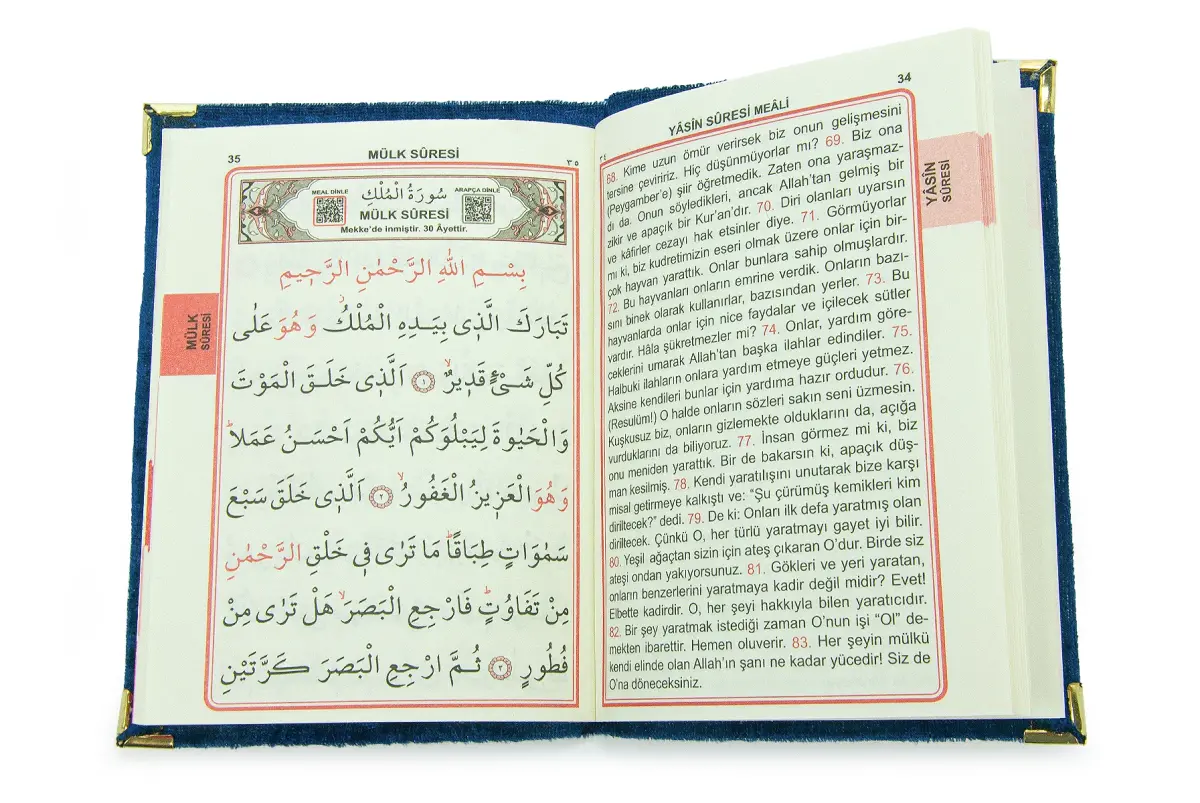 34
YÂSİN SÛRESİ MEÂLİ
68. Kime uzun ömür verirsek biz onun gelişmesini
tersine çeviririz. Hiç düşünmüyorlar mı? 69. Biz ona
(Peygamber’e) şiir öğretmedik. Zaten ona yaraşmaz-
dı da. Onun söyledikleri, ancak Allah’tan gelmiş bir
zikir ve apaçık bir Kur’an’dır. 70. Diri olanları uyarsın
ve kâfirler cezayı hak etsinler diye. 71. Görmüyorlar
mı ki, biz kudretimizin eseri olmak üzere onlar için bir-
çok hayvan yarattık. Onlar bunlara sahip olmuşlardır.
72. Bu hayvanları onların emrine verdik. Onların bazı-
sını binek olarak kullanırlar, bazısından yerler. 73. Bu
hayvanlarda onlar için nice faydalar ve içilecek sütler
vardır. Hâla şükretmezler mi? 74. Onlar, yardım göre-
ceklerini umarak Allah’tan başka ilahlar edindiler. 75.
Halbuki ilahların onlara yardım etmeye güçleri yetmez.
Aksine kendileri bunlar için yardıma hazır ordudur. 76.
(Resulüm!) O halde onların sözleri sakın seni üzmesin.
Kuşkusuz biz, onların gizlemekte olduklarını da, açığa
vurduklarını da biliyoruz. 77. İnsan görmez mi ki, biz
onu meniden yarattık. Bir de bakarsın ki, apaçık düş-
man kesilmiş. 78. Kendi yaratılışını unutarak bize karşı
misal getirmeye kalkıştı ve: “Şu çürümüş kemikleri kim
diriltecek?” dedi. 79. De ki: Onları ilk defa yaratmış olan
diriltecek. Çünkü O, her türlü yaratmayı gayet iyi bilir.
80. Yeşil ağaçtan sizin için ateş çıkaran O’dur. Birde siz
ateşi ondan yakıyorsunuz. 81. Gökleri ve yeri yaratan,
onların benzerlerini yaratmaya kadir değil midir? Evet!
Elbette kadirdir. O, her şeyi hakkıyla bilen yaratıcıdır.
82. Bir şey yaratmak istediği zaman O’nun işi “Ol” de-
mekten ibarettir. Hemen oluverir. 83. Her şeyin mülkü
kendi elinde olan Allah’ın şanı ne kadar yücedir! Siz de
O’na döneceksiniz.
YÂSİN
SÛRESİ
35
MÜLK SÛRESİ
٣٥
MEAL DİNLE
سُورَةُ الْمُلْكِ
ARAPÇA DİNLE
MÜLK SÛRESİ
Mekke’de inmiştir. 30 Âyettir.
بِسْمِ اللّٰهِ الرَّحْمٰنِ الرَّح۪يمِ
تَبَارَكَ الَّذ۪ي بِيَدِهِ الْمُلْكُۘ وَهُوَ عَلٰى
كُلِّ شَيْءٍ قَد۪يرٌۙ ﴿١﴾ اَلَّذ۪ي خَلَقَ الْمَوْتَ
وَالْحَيٰوةَ لِيَبْلُوَكُمْ اَيُّكُمْ اَحْسَنُ عَمَلًاۜ
وَهُوَ الْعَز۪يزُ الْغَفُورُۙ ﴿٢﴾ اَلَّذ۪ي خَلَقَ سَبْعَ
سَمٰوَاتٍ طِبَاقًاۜ مَا تَرٰى ف۪ي خَلْقِ الرَّحْمٰنِ
مِنْ تَفَاوُتٍۜ فَارْجِعِ الْبَصَرَۙ هَلْ تَرٰى مِنْ
فُطُورٍ ﴿٣﴾ ثُمَّ ارْجِعِ الْبَصَرَ كَرَّتَيْنِ
MÜLK
SÛRESİ